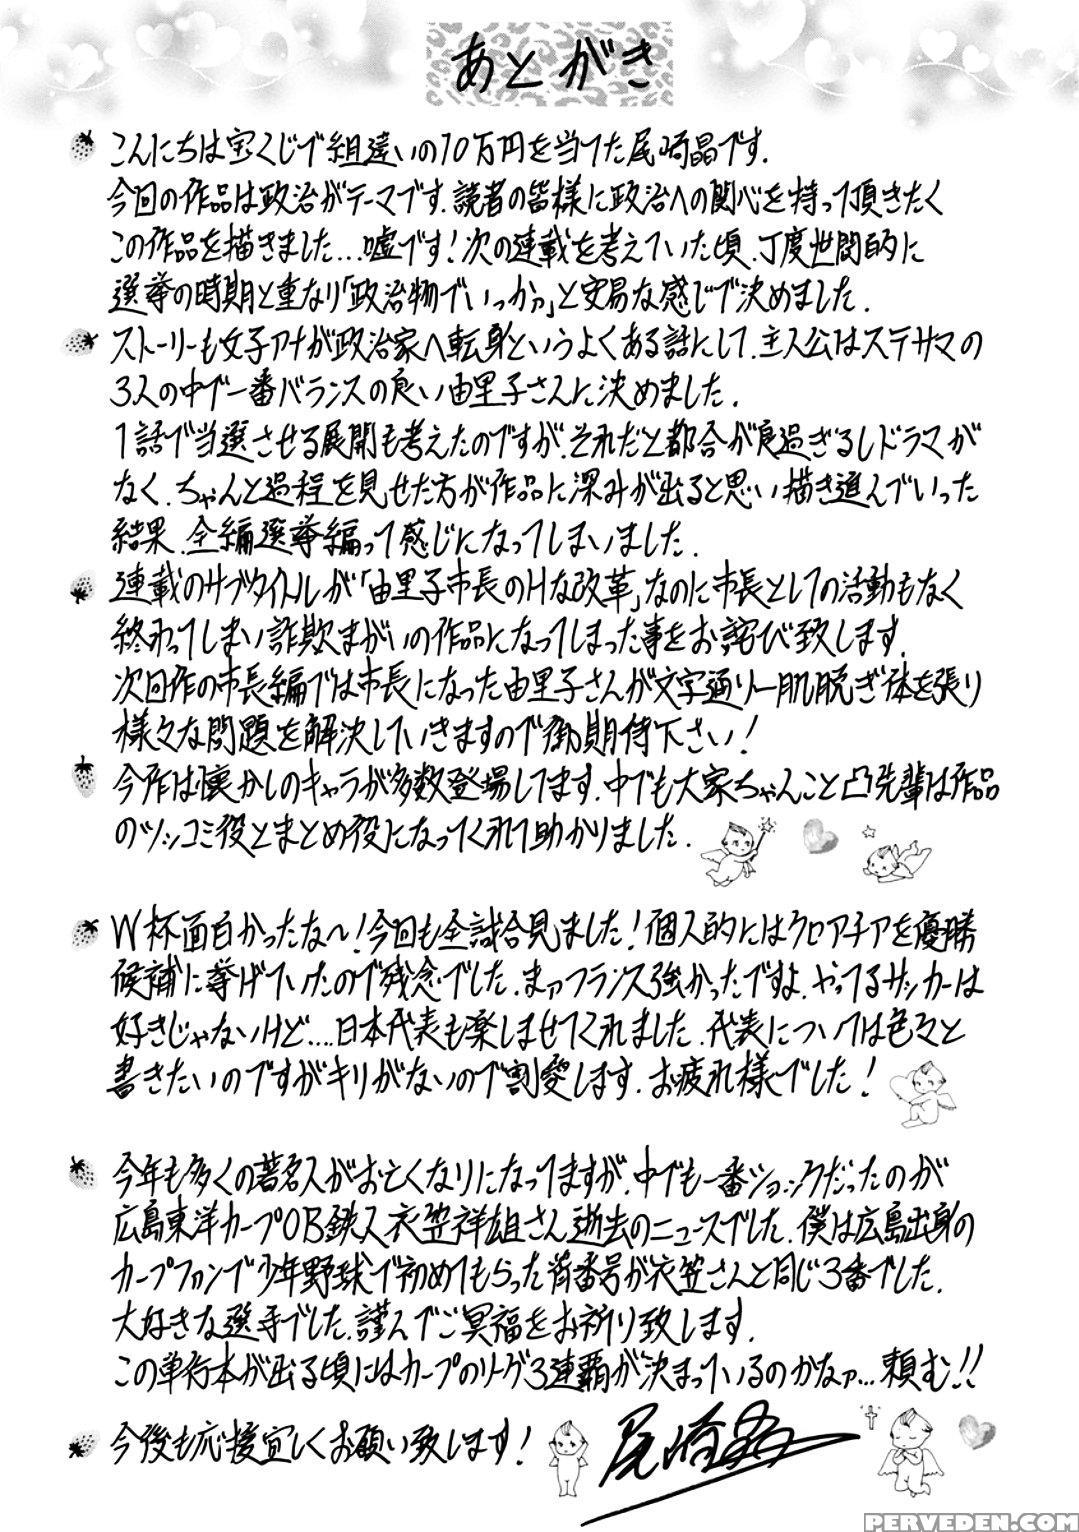 あとがき
こんにちは宝くじで組違いの10万円を当てた尾崎晶です.
今回の作品は政治がテーマです.読者の皆様に政治への関心を持って頂きたく
この作品を描きました…嘘です!次の連載を考えていた頃.丁度世間的に
選挙の時期と重なり「政治物でいっかぁ」と安易な感じで決めました.
ストーリーも女子アナが政治家へ転身というよくある話にして.主人公はステサマの
3人の中で一番バランスの良い由里子さんに決めました.
1話で当選させる展開も考えたのですが.それだと都合が良過ぎるしドラマが
なく.ちゃんと過程を見せた方が作品に深みが出ると思い描き進んでいった
結果.全編選挙編って感じになってしまいました.
連載のサブタイトルが「由里子市長のHな改革」なのに市長としての活動もなく
終わってしまい詐欺まがいの作品になってしまった事をお詫び致します.
次回作の市長編では市長になった由里子さんが文字通り一肌脱ぎ体を張り
様々な問題を解決していきますので御期待下さい!
今作は懐かしのキャラが多数登場してます.中でも大家ちゃんこと凸先輩は作品
のツッコミ役とまとめ役になってくれて助かりました.
W杯面白かったな~!今回も全試合見ました!個人的にはクロアチアを優勝
候補に挙げていたので残念でした.まァフランス強かったですよ.やってるサッカーは
好きじゃないけど….日本代表も楽しませてくれました.代表については色々と
書きたいのですがキリがないので割愛します.お疲れ様でした!
今年も多くの著名人がお亡くなりになってますが.中でも一番ショックだったのが
広島東洋カープOB鉄人衣笠祥雄さん逝去のニュースでした.僕は広島出身の
カープファンで少年野球で初めてもらった背番号が衣笠さんと同じ3番でした.
大好きな選手でした.謹んでご冥福をお祈り致します.
この単行本が出る頃にはカープのリーグ3連覇が決まっているのかなァ…頼む!!
今後も応援宜しくお願い致します!
尾崎晶
PERVEDEN.COM